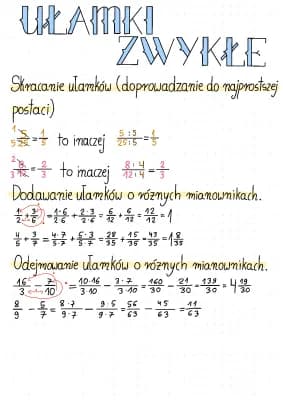 UŁAMKI
ZWYKŁE
Skracanie ułamków (doprowadzanie do najprostszej
postaci)
1 5/5 25 = 1/5 to inaczej 5:5/25:5 = 1/5
2 8/3 12 = 2/3 to inaczej 8:4/12:4 = 2/3
Dodawanie ułamków o różnych mianownikach.
1/2 + 3/6 = 1·6/2·6 + 2·3/2·6 = 6/12 + 6/12 = 12/12 = 1
4/5 + 3/7 = 4·7/5·7 + 5·3/5·7 = 28/35 + 15/35 = 43/35 = 1 8/35
Odejmowanie ułamków o różnych mianownikach.
16/3 - 7/10 = 10·16/3·10 - 3·7/3·10 = 160/30 - 21/30 = 139/30 = 4 19/30
8/9 - 5/7 = 8·7/9·7 - 9·5/9·7 = 56/63 - 45/63 = 11/63